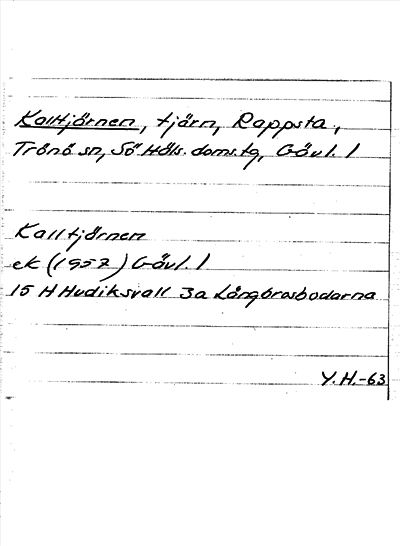 Kalltjärnen, tjärn, Rappsta.,
Trönö sn, Sö. Häls. doms.tg, Gävl. l
Kalltjärnen
ek (1957) Gävl. l
15 H Hudiksvall 3a Långbrosbodarna
Y. H.-63